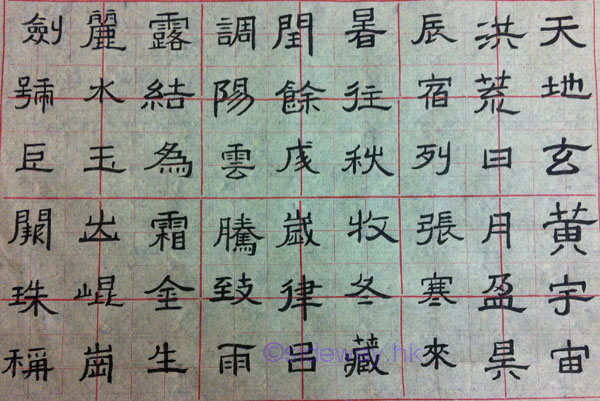 天地玄黃宇宙
洪荒日月盈昃
辰宿列張寒來
暑往秋收冬藏
閏餘成歲律呂
調陽雲騰致雨
露結為霜金生
麗水玉出崐崗
劍號巨闕珠稱
©sideway.hk